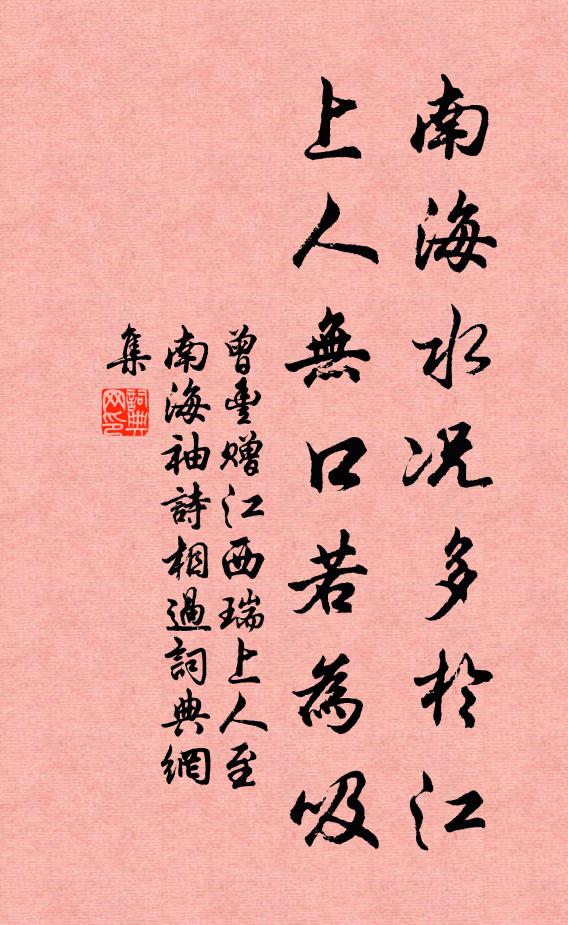 南海水况多於江
上人無口若為吸
曾豐贈江西瑞上人至
南海袖詩相過詞典網
集
詞典
网印